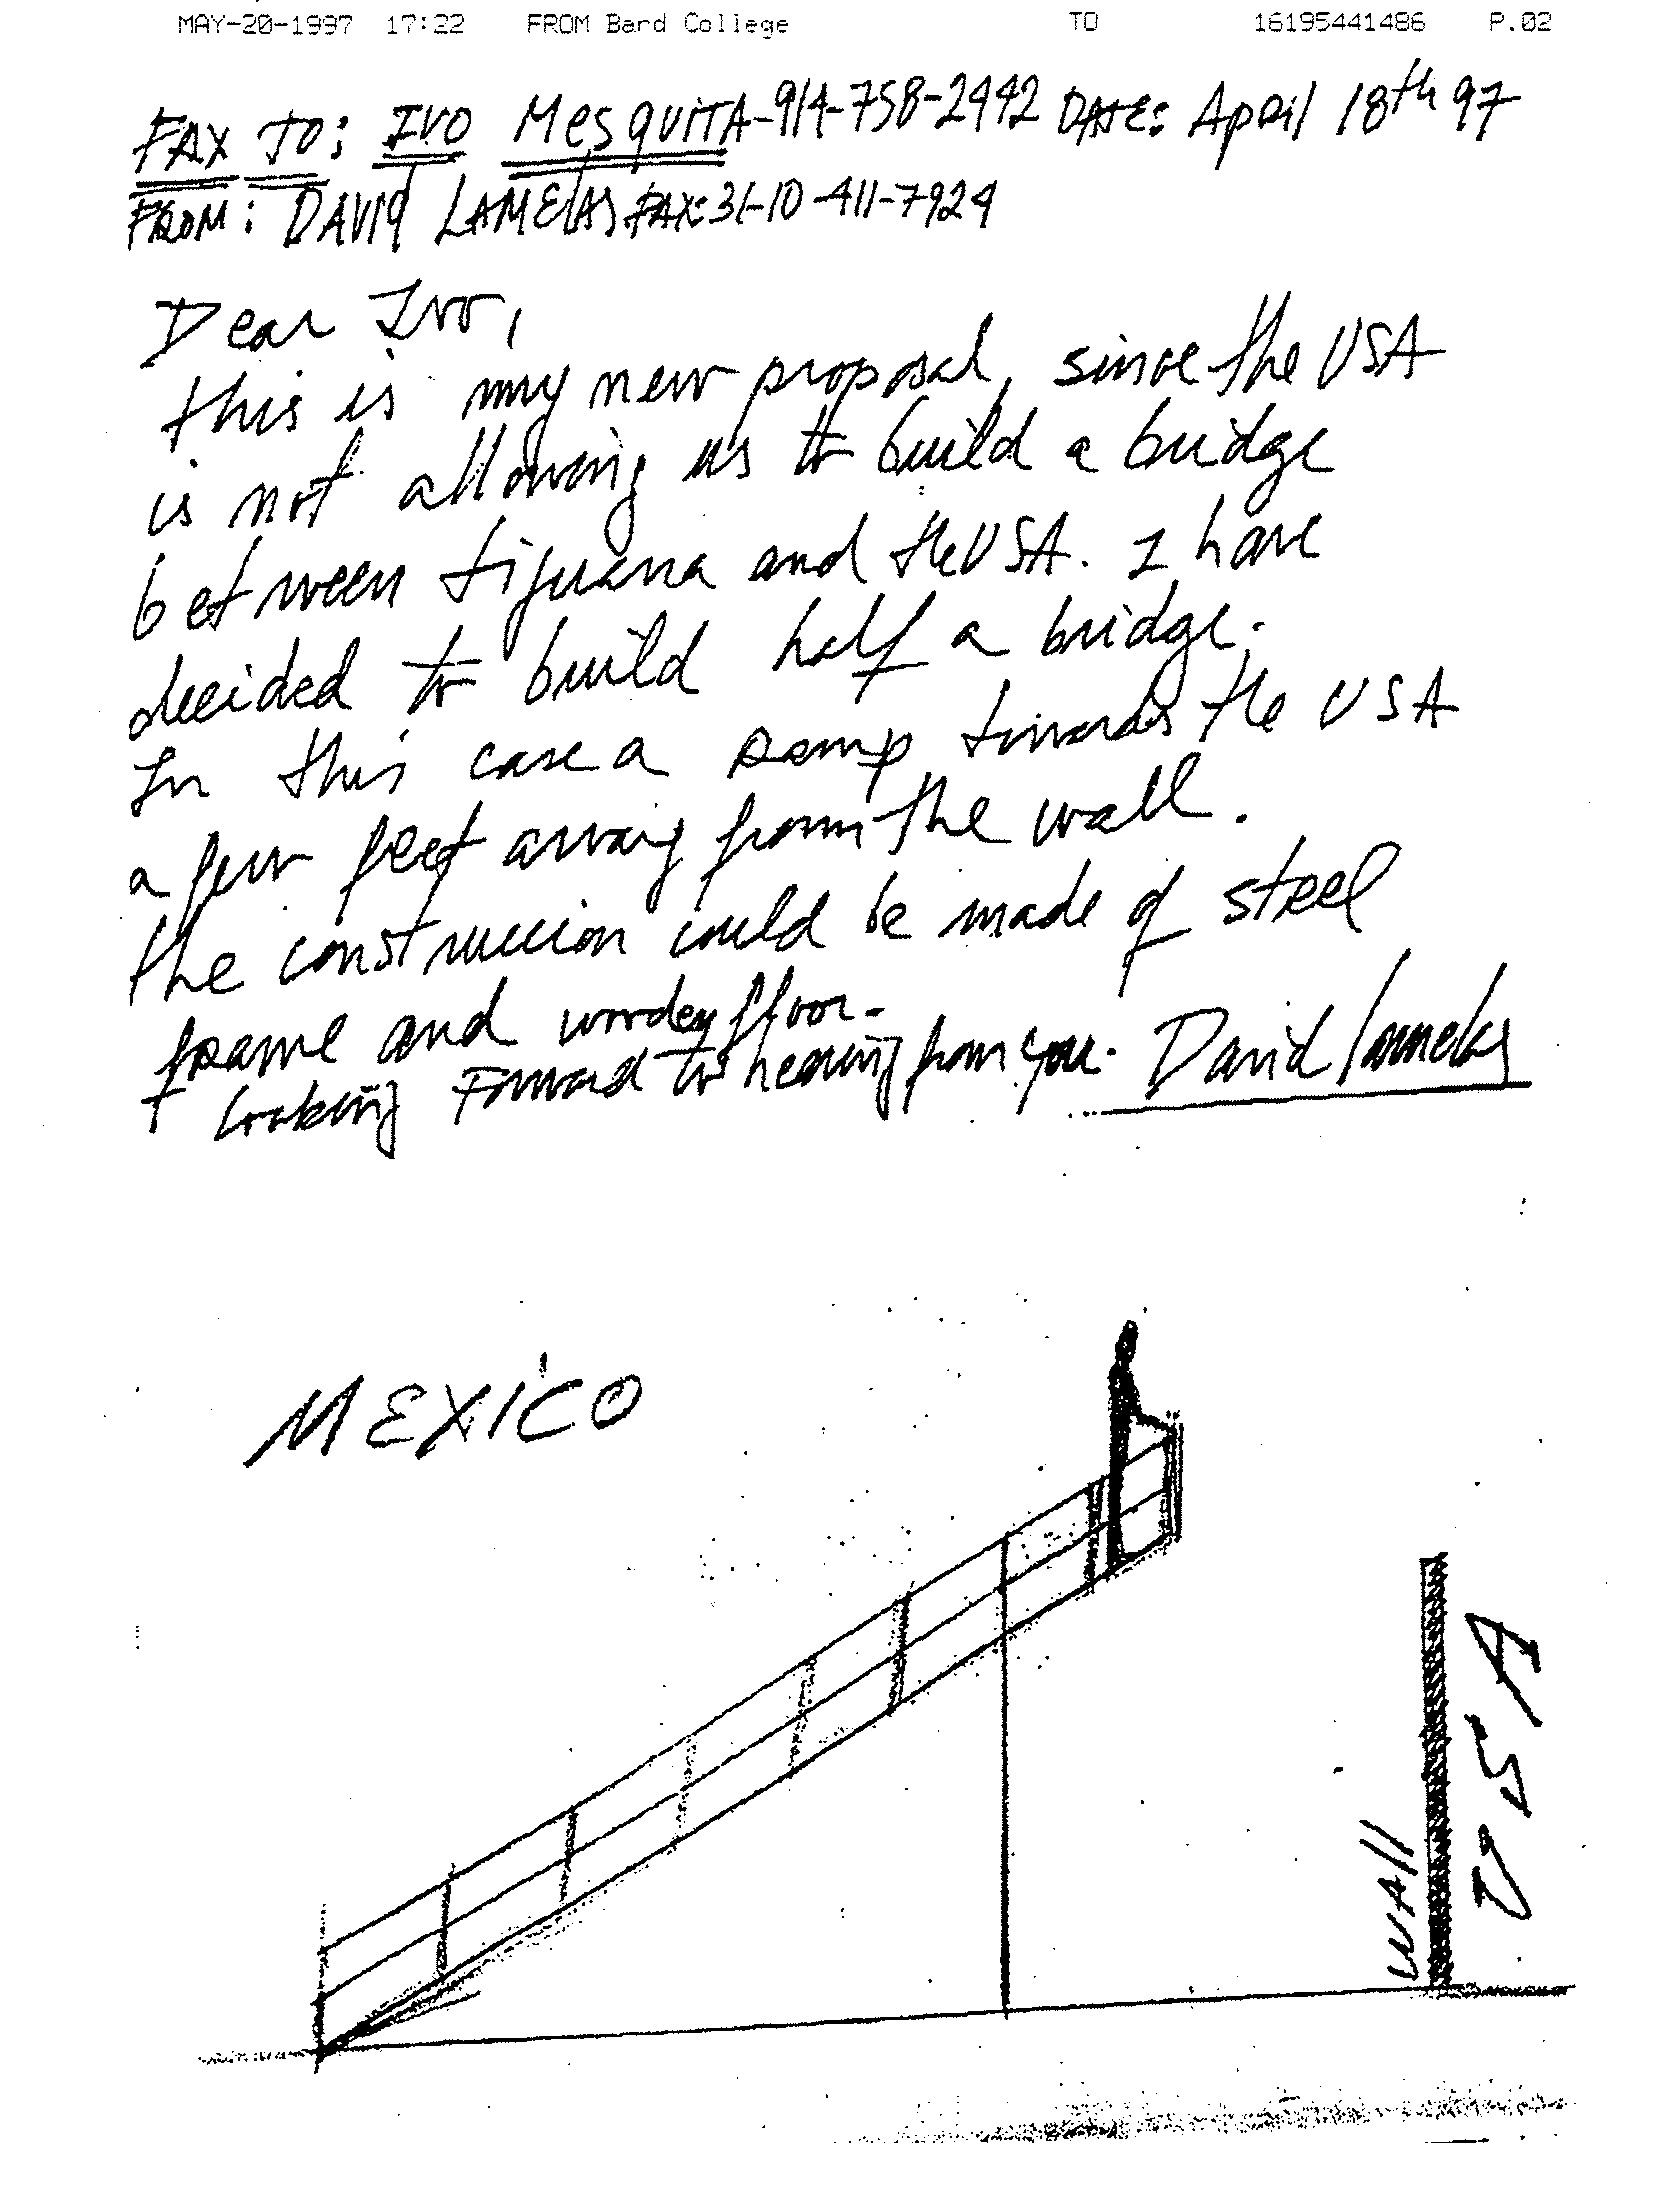 MAY-20-1997 17:22 FROM Bard College TO 16195441486 P.02
FAX TO: IVO MESQUITA-914-758-2442 DATE: April 18th 97
FROM: DAVID LAMELAS FAX: 31-10-411-7924
Dear Ivo,
this is my new proposal, since the USA
is not allowing us to build a bridge
between tijuana and the USA. I have
decided to build half a bridge.
In this case a ramp towards the USA
a few feet away from the wall.
the construccion could be made of steel
frame and wooden floor.
looking Forward to hearing from you. David Lamelas
MEXICO
WAll
USA